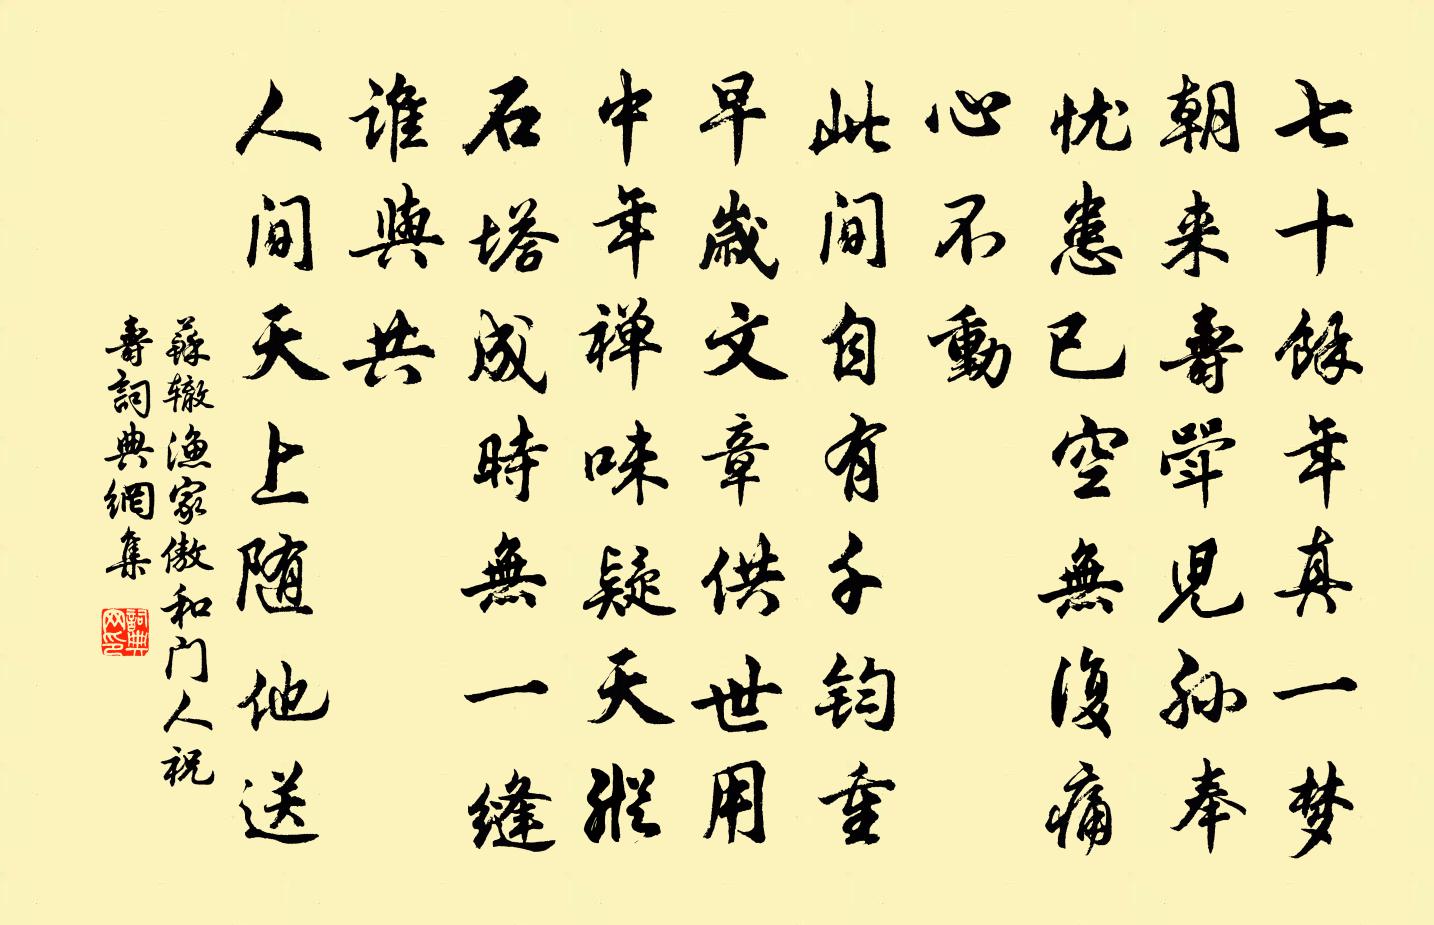 七十餘年真一梦
朝来壽斝児孫奉
忧患已空無復痛
心不動
此间自有千钧重
早歲文章供世用
中年禅味疑天縱
石塔成時無一縫
谁與共
人间天上随他送
蘇辙漁家傲和门人祝
壽詞典網集
詞典网印